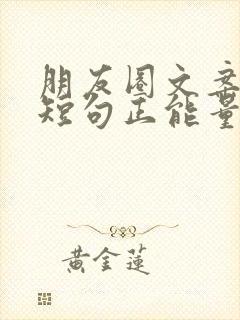 朋友圈文案
短句正能量
黄金莲